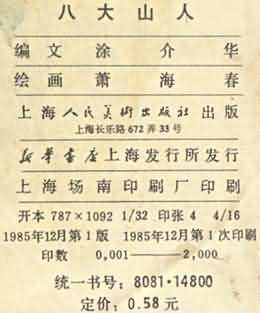 八大山人
编文涂介华
绘画萧海春
上海人民美術出版社出版
上海长乐路672弄33号
新華書店上海发行所发行
上海场南印刷厂印刷
开本 787×1092 1/32 印张 4 4/16
1985年12月第1版 1985年12月第1次印刷
印数 0,001——2,000
统一书号：8081·14800
定价：0.58元